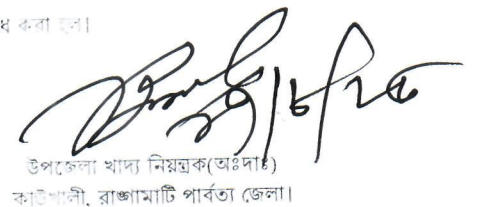 ধ করা হল।
উপজেলা খাদ্য নিয়ন্ত্রক(অঃদাঃ)
কাউখালী, রাঙ্গামাটি পার্বত্য জেলা।